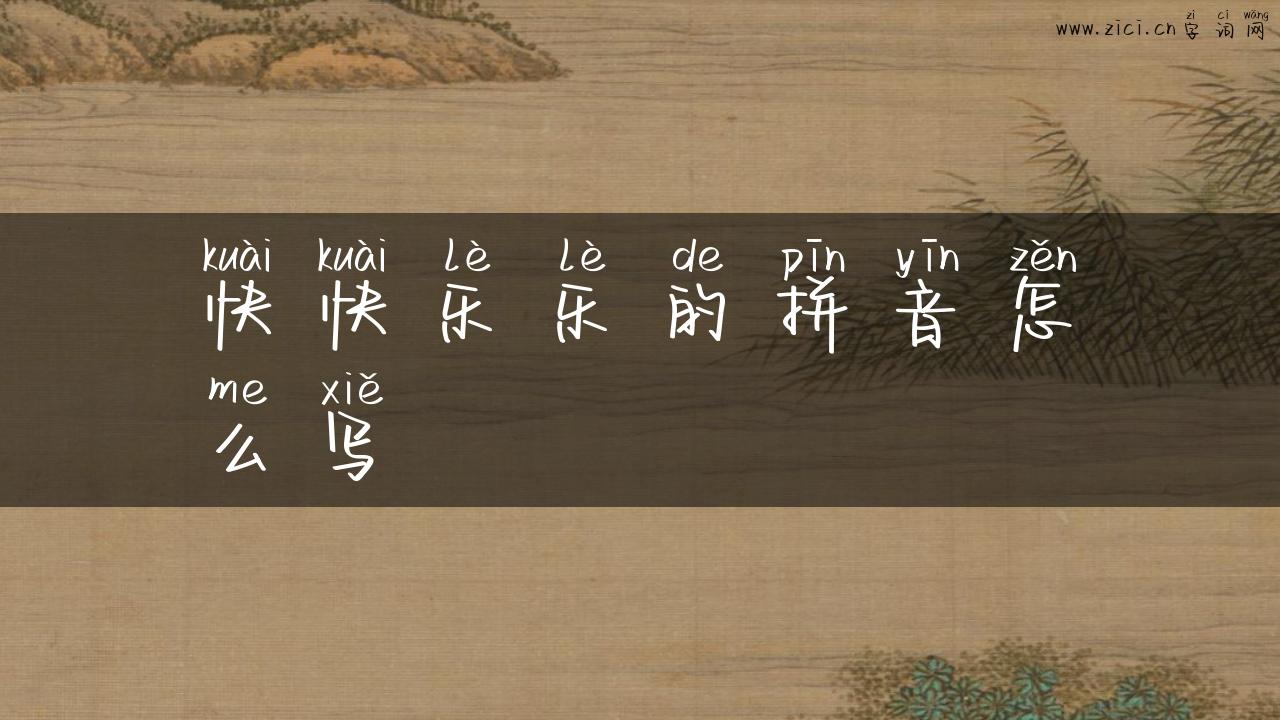 zì cí wǎng
www.zici.cn 字词网
kuài kuài lè lè de pīn yīn zěn
快快乐乐的拼音怎
me xiě
么写